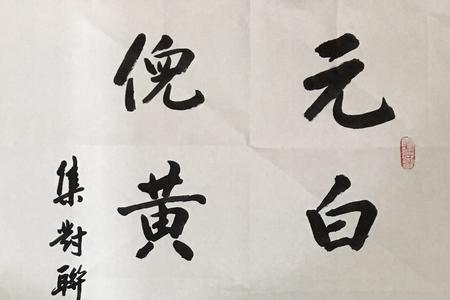 元白
倪黄
集對聯